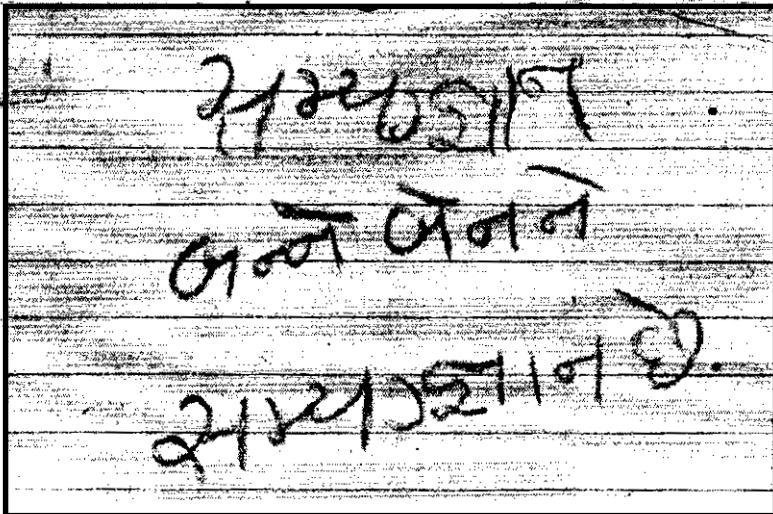 સમ્યગ્જ્ઞાન
બન્ને બેનને
સમ્યગ્જ્ઞાન છે.